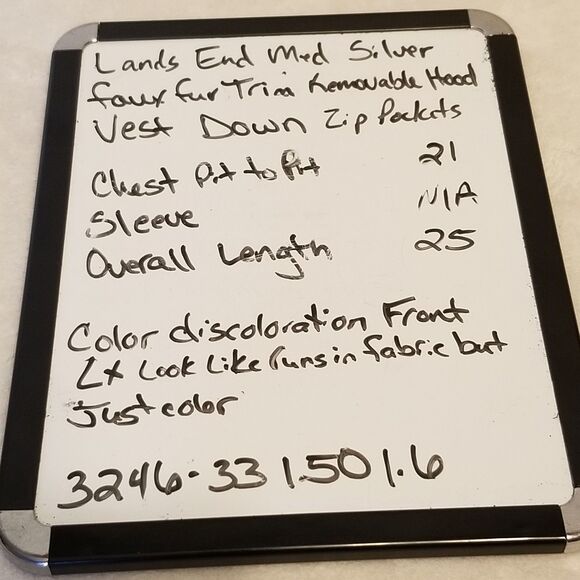 Lands End Med Silver
faux fur Trim Removable Hood
Vest Down Zip Pockets
Chest Pit to Pit 21
Sleeve N/A
Overall Length 25
Color discoloration Front
Look Like runs in fabric but
Just color
3246-33 1.50 1.6